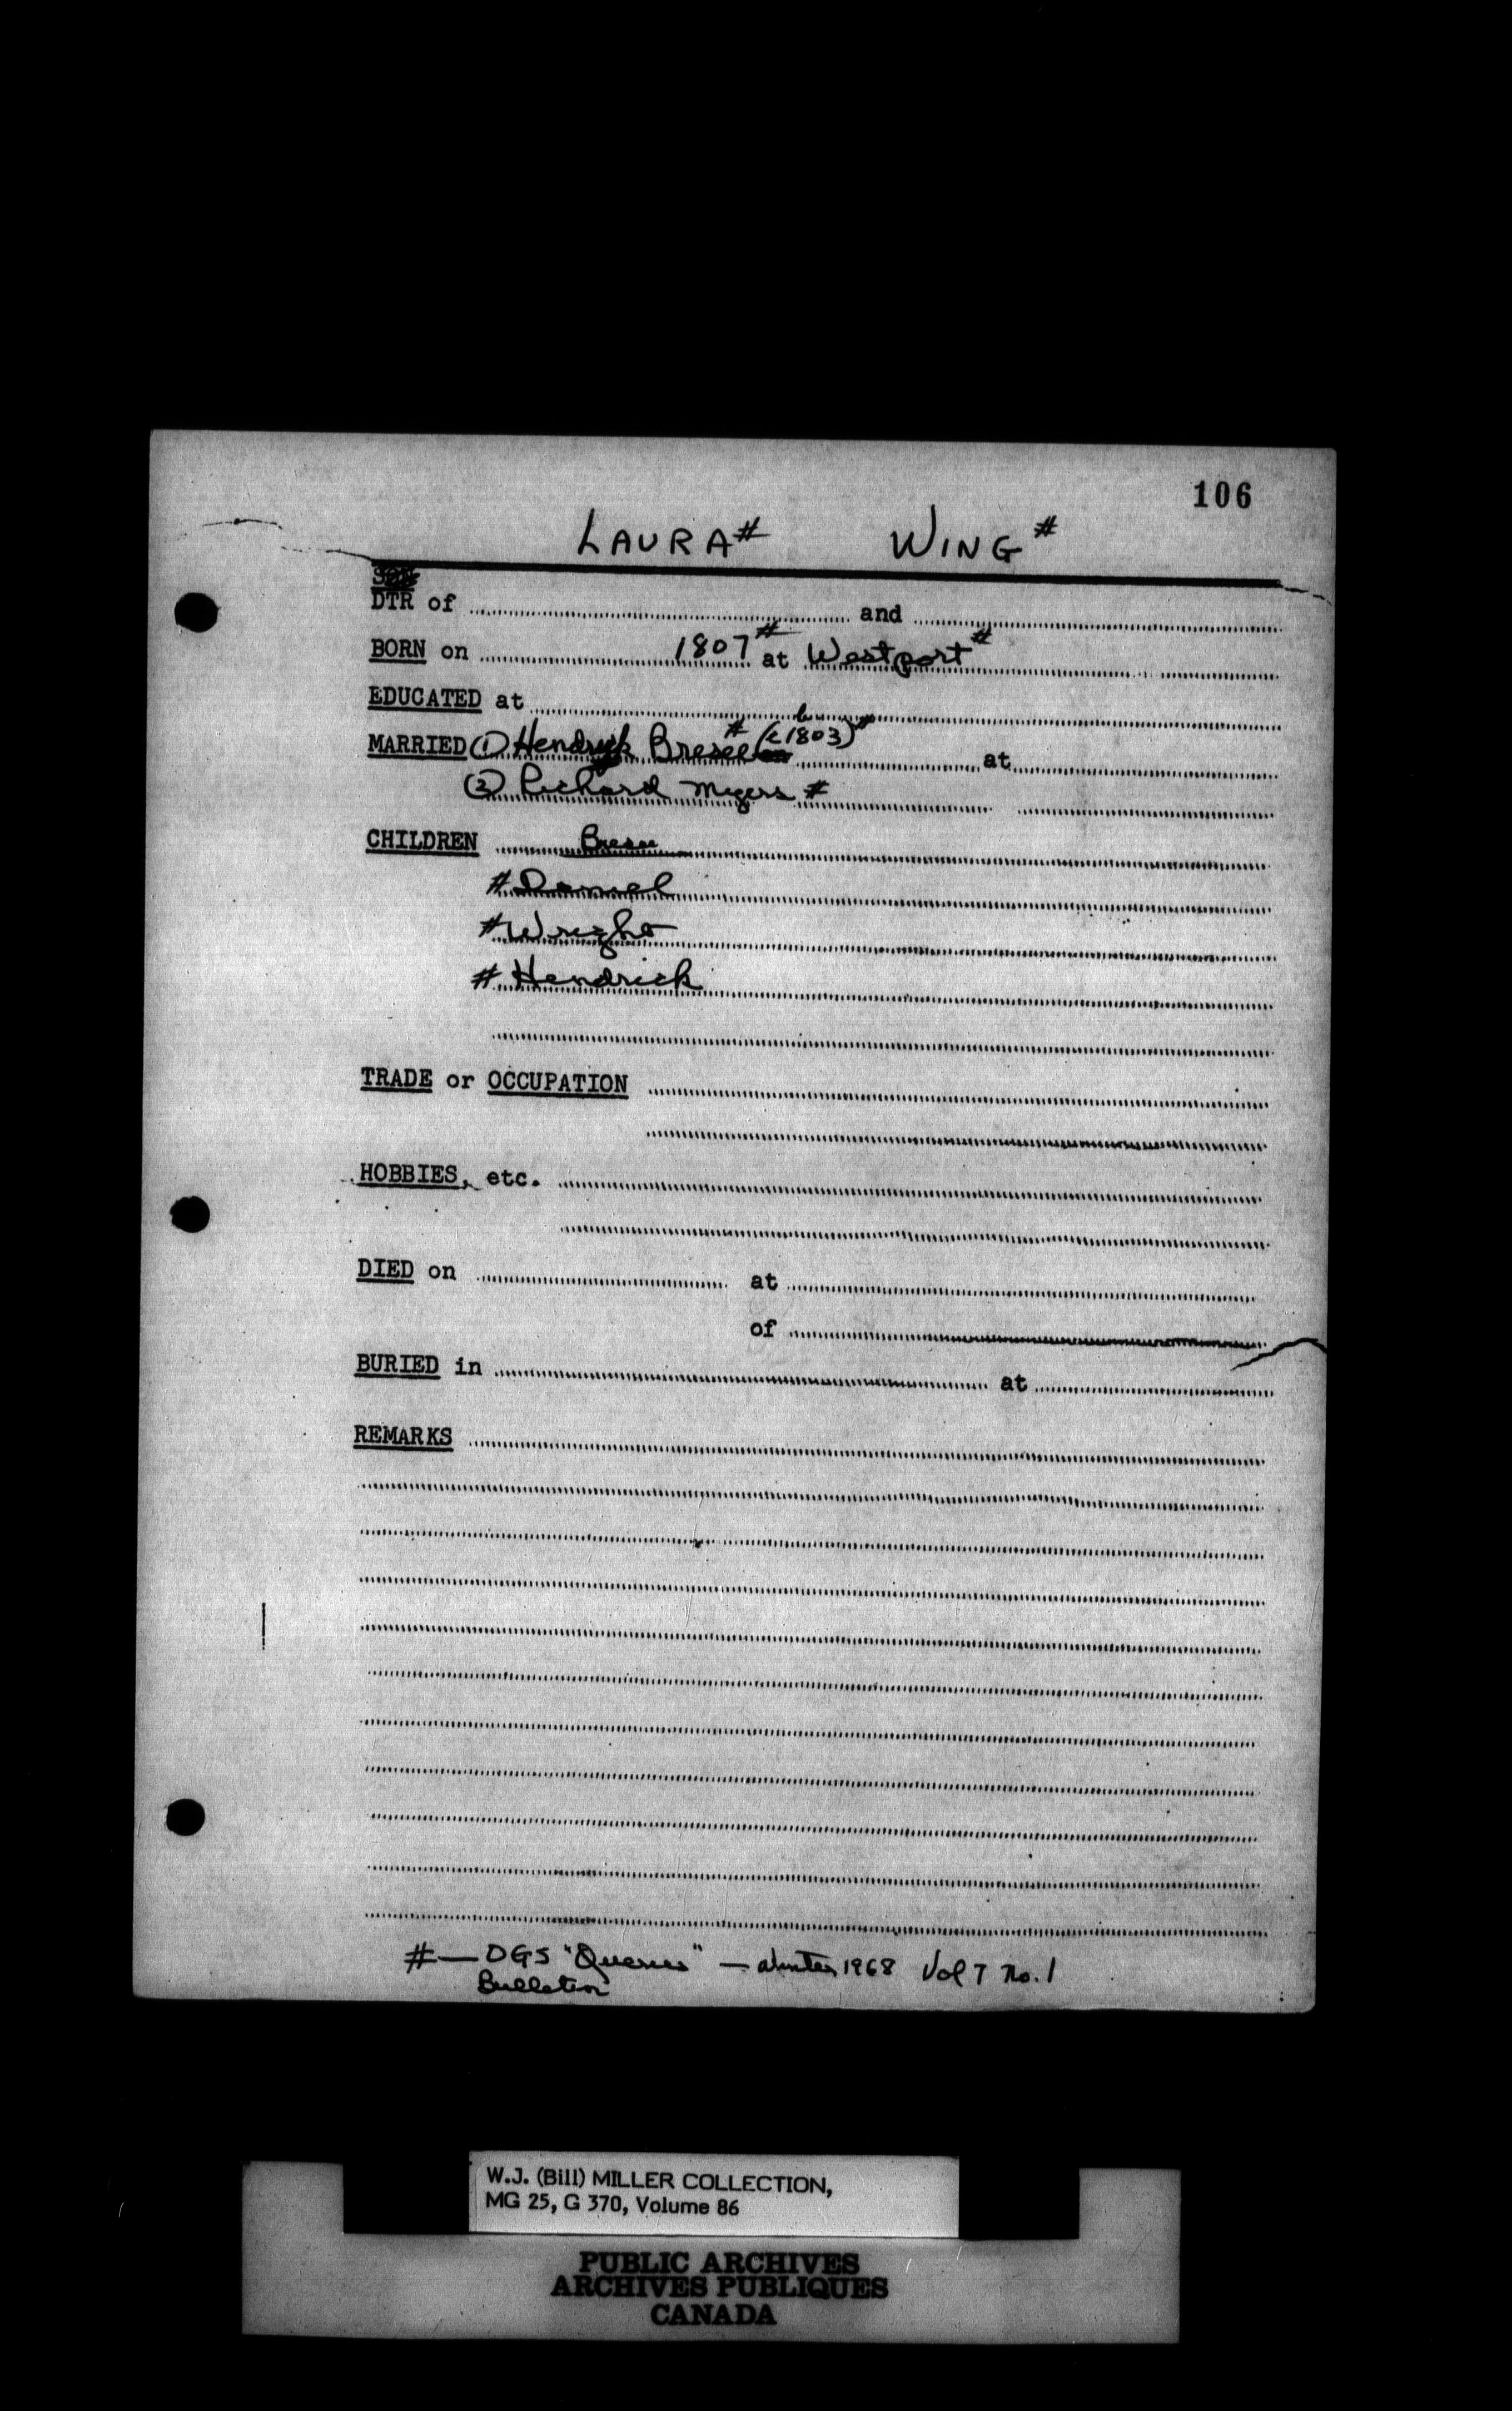 106
LAURA# WING#
SON
DTR of and
BORN on 1807# at Westport#
EDUCATED at
MARRIED (1) Hendryk Bresee# (b c1803)# at
(2) Richard Myers #
CHILDREN Bresee
# Daniel
# Wright
# Hendrick
TRADE or OCCUPATION
HOBBIES, etc.
DIED on at
of
BURIED in at
REMARKS
# — OGS "Queries" — Winter 1968 Vol 7 No. 1
Bulletin
W.J. (Bill) MILLER COLLECTION,
MG 25, G 370, Volume 86
PUBLIC ARCHIVES
ARCHIVES PUBLIQUES
CANADA